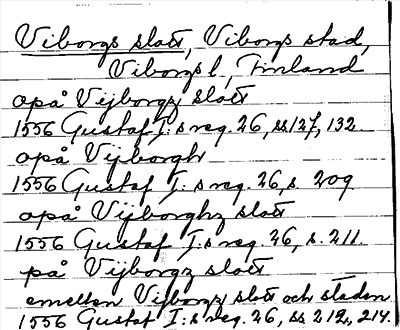 Viborgs slott, Viborgs stad,
Viborgs l, Finland
opå Vijborgz slott
1556 Gustaf I:s reg. 26, ss 127, 132
opå Vijborgh
1556 Gustaf I:s reg. 26, s. 209
opå Vijborghz slott
1556 Gustaf I:s reg 26, s. 211.
på Vijborgz slott
emellen Vijborgz slott och staden
1556 Gustaf I:s reg. 26, ss 212, 214.